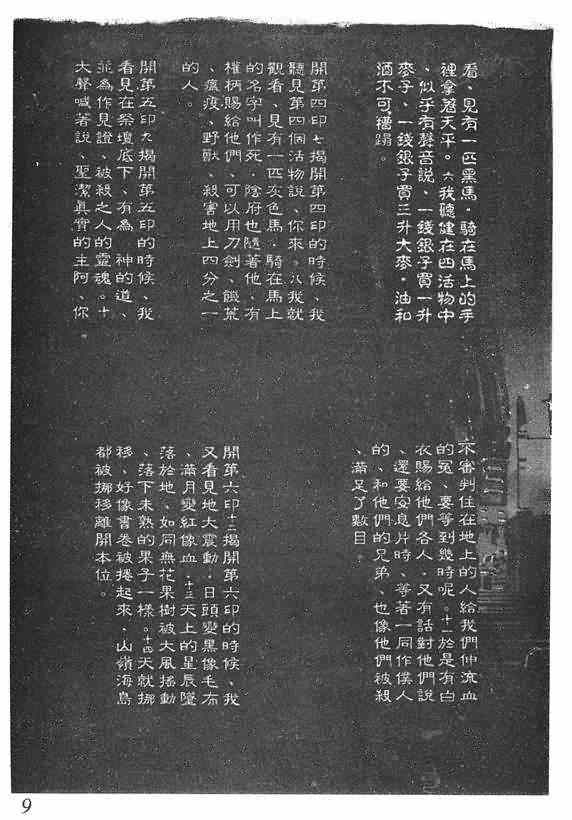 看、見有一匹黑馬．騎在馬上的手
裡拿着天平。六我聽健在四活物中
、似乎有聲音說、一錢銀子買一升
麥子、一錢銀子買三升大麥．油和
酒不可糟蹋。
開第四印七揭開第四印的時候、我
聽見第四個活物說、你來。八我就
觀看、見有一匹灰色馬．騎在馬上
的名字叫作死．陰府也隨著他、有
權柄賜給他們、可以用刀劍、饑荒
、瘟疫、野獸、殺害地上四分之一
的人。
開第五印九揭開第五印的時候、我
看見在祭壇底下、有為　神的道、
並為作見證、被殺之人的靈魂。十
大聲喊著說、聖潔真實的主阿、你
不審判住在地上的人給我們伸流血
的冤、要等到幾時呢。十一於是有白
衣賜給他們各人．又有話對他們說
、還要安息片時、等著一同作僕人
的、和他們的兄弟、也像他們被殺
、滿足了數目。
開第六印十二揭開第六印的時候、我
又看見地大震動．日頭變黑像毛布
、滿月變紅像血．十三天上的星辰墜
落於地、如同無花果樹被大風搖動
、落下未熟的果子一樣。十四天就挪
移、好像書卷被捲起來．山嶺海島
都被挪移離開本位。
9